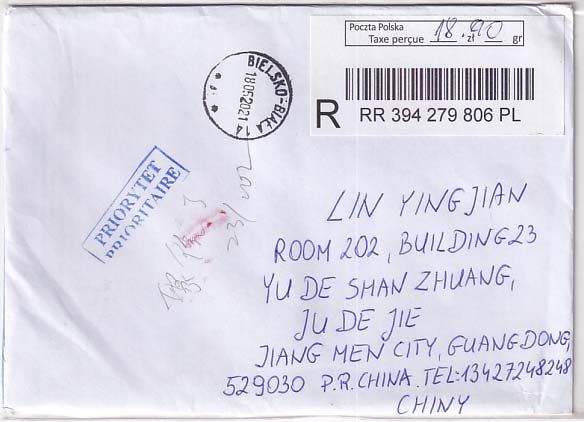 Poczta Polska
Taxe perçue 18. zł 90 gr
R RR 394 279 806 PL
BIELSKO-BIAŁA
18052021
14
PRIORYTET
PRIORITAIRE
LIN YINGJIAN
ROOM 202, BUILDING 23
YU DE SHAN ZHUANG,
JU DE JIE
JIANG MEN CITY, GUANGDONG,
529030 P.R.CHINA. TEL:13427248248
CHINY